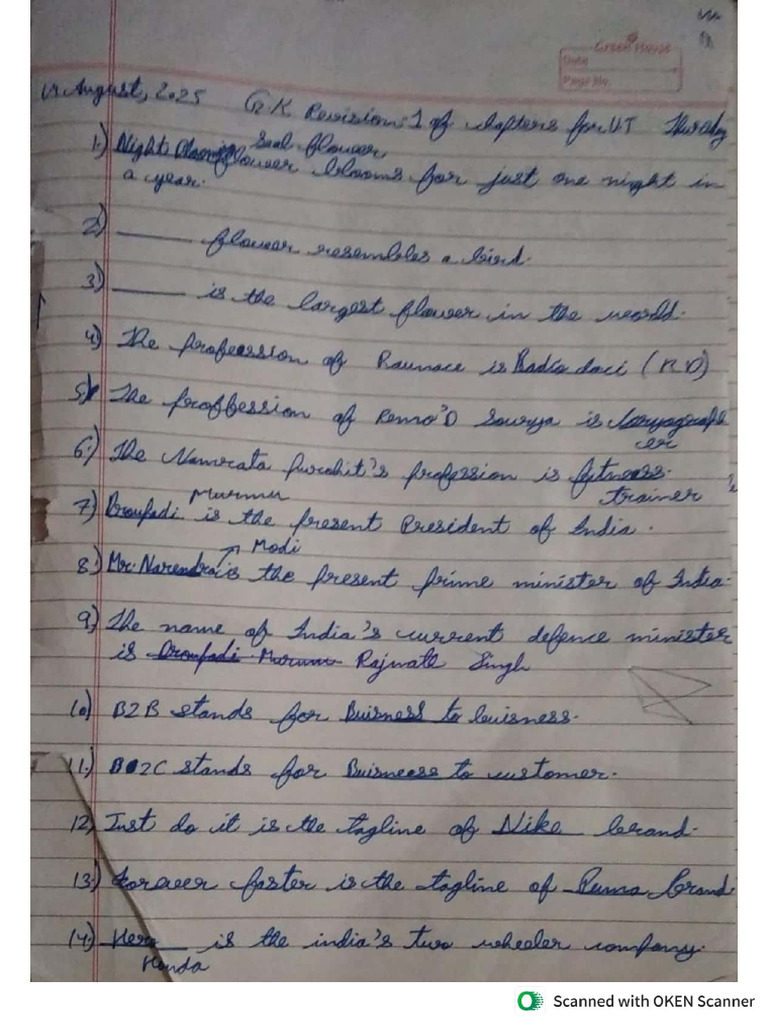 August, 2025 G.K Revision-1 of chapters for U.T Thursday
Green House
Date
Page No.
1.) Night Blooming Seal flower
flower blooms for just one night in
a year.
2) ______ flower resembles a bird.
3) ______ is the largest flower in the world.
4) The profession of Raunace is Radio (RD)
5) The proffession of Remo'D Sourya is
er
6.) The Namrata purohit's profession is fitness
trainer
7.) Droupadi Murmu is the present President of India.
8.) Mr. Narendra Modi is the present prime minister of India.
9) The name of India's current defence minister
is Droupadi Murmu Rajnath Singh
10) B2B stands for Buisness to buisness.
11.) B2C stands for Buisness to customer.
12) Just do it is the tagline of Nike brand.
13.) Forever faster is the tagline of Puma brand.
14.) Hero is the india's two wheeler company.
Honda
Scanned with OKEN Scanner